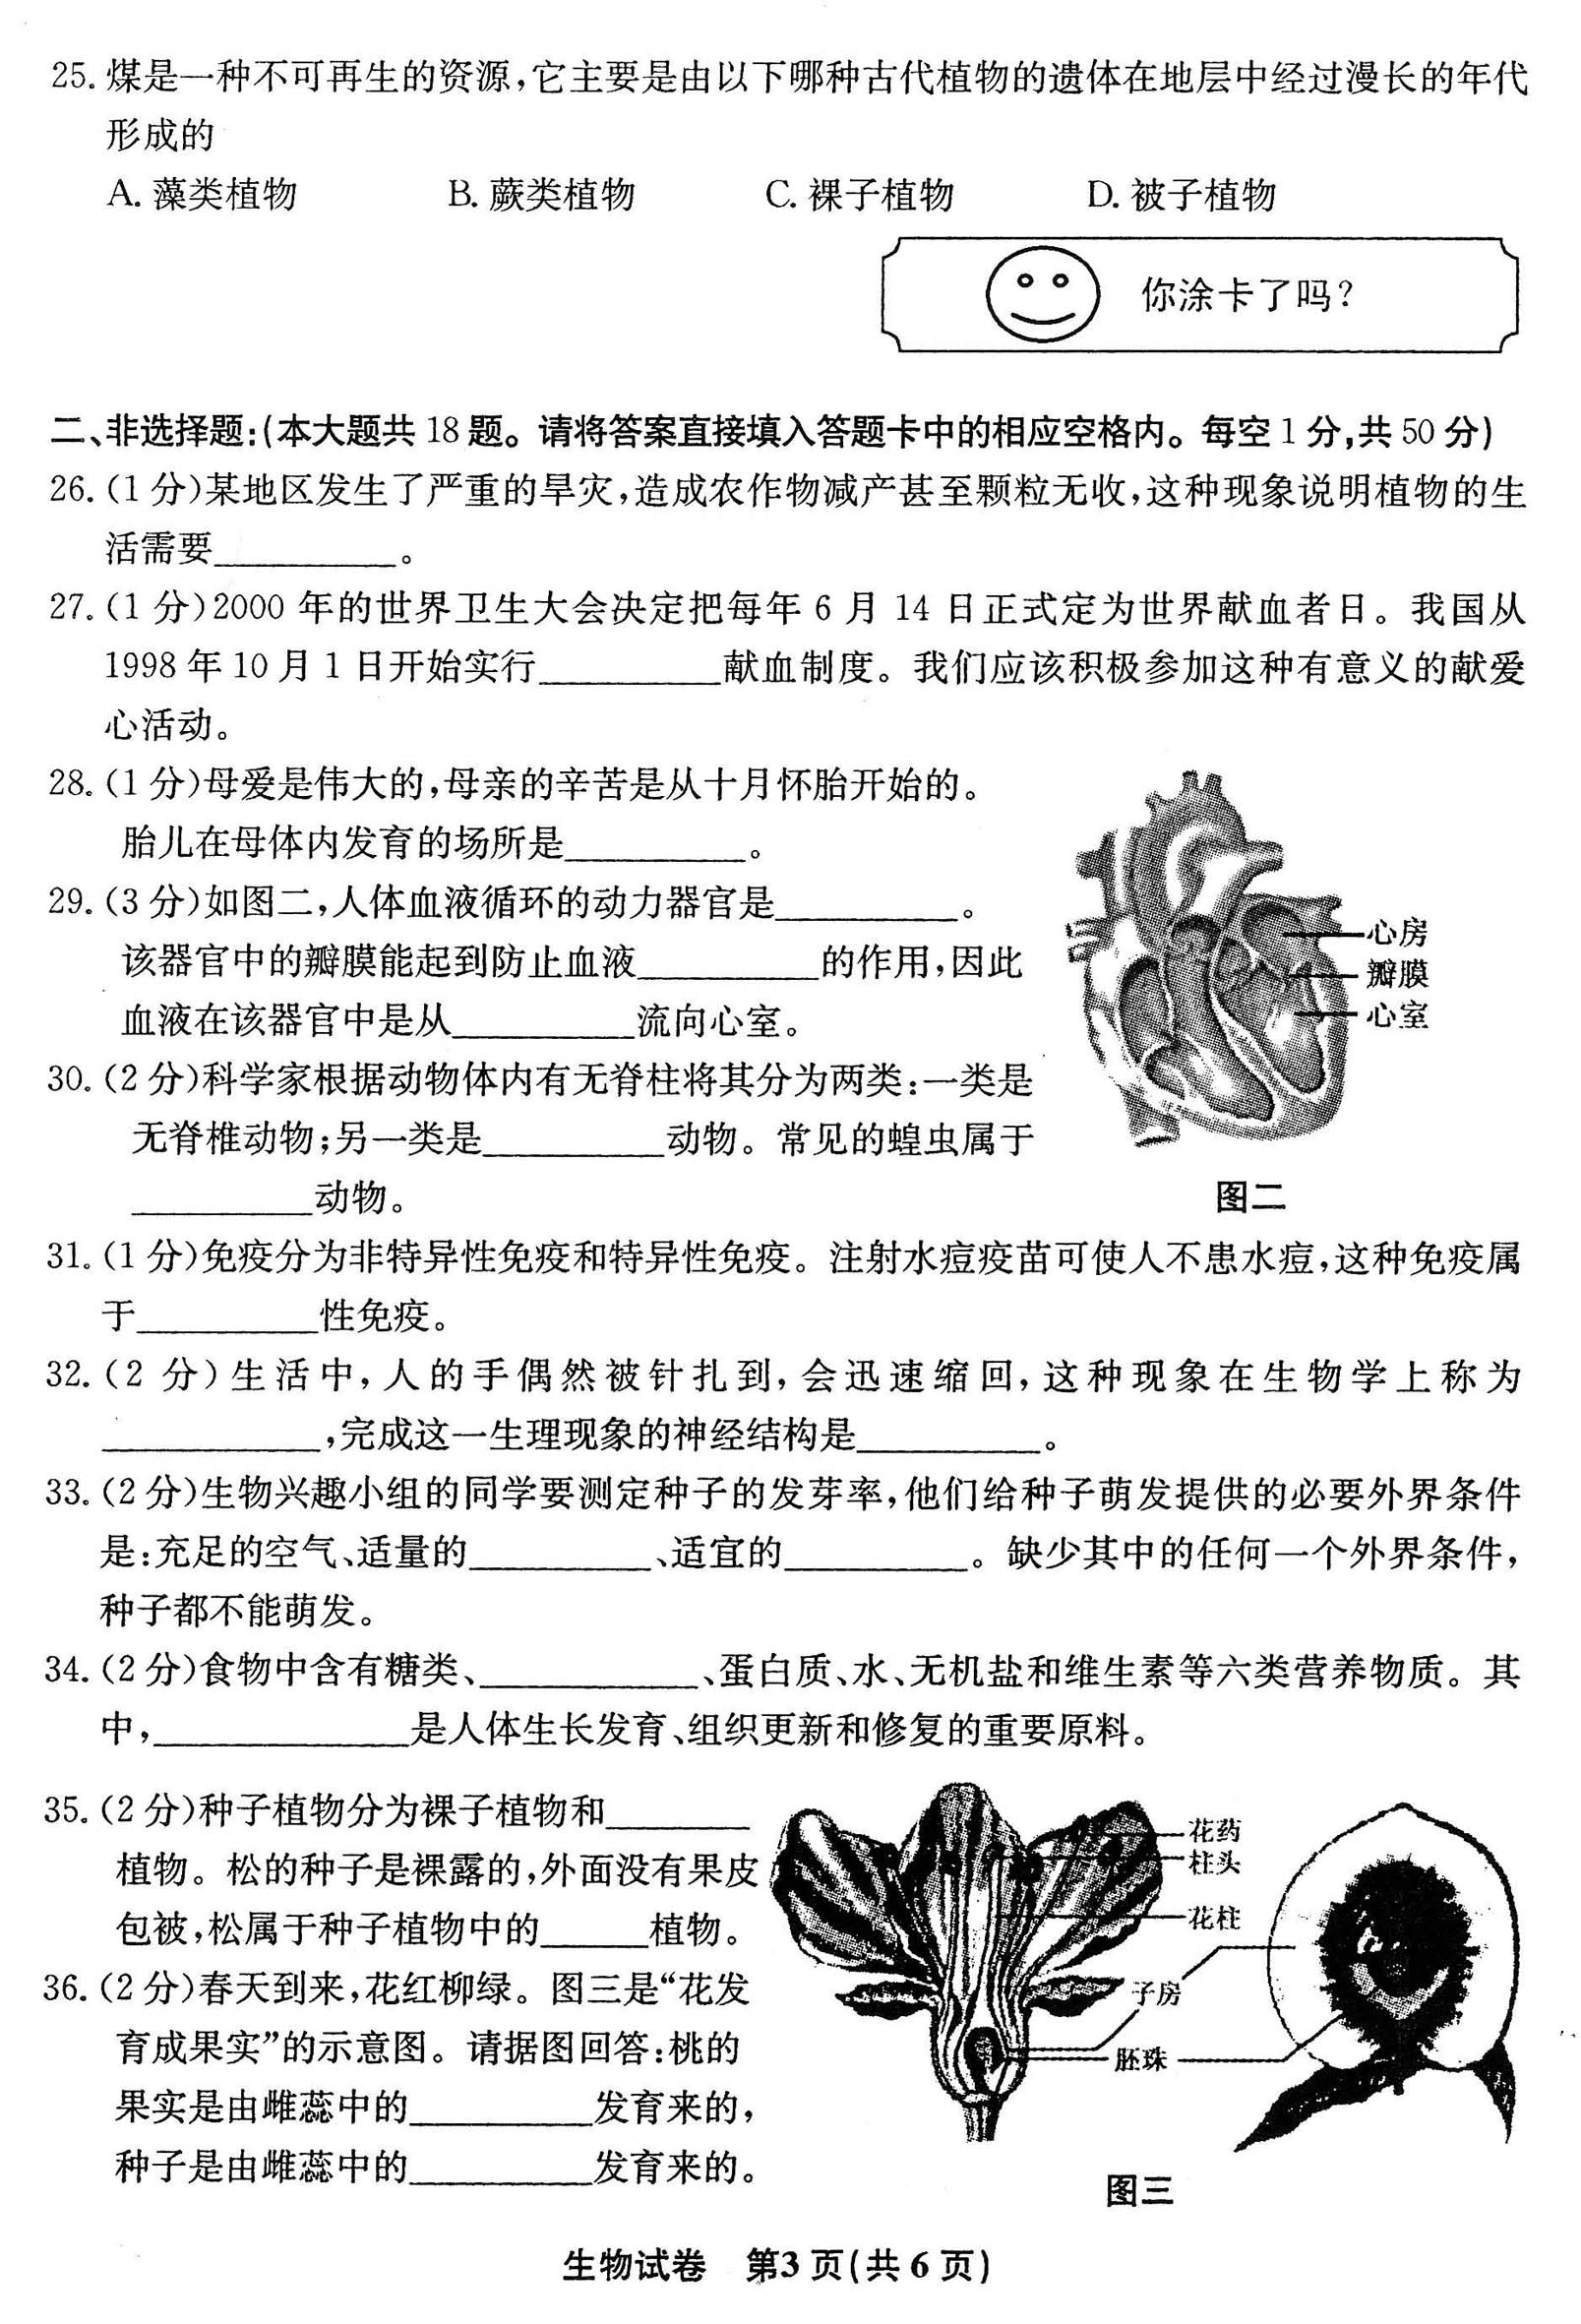 25. 煤是一种不可再生的资源,它主要是由以下哪种古代植物的遗体在地层中经过漫长的年代
形成的
A. 藻类植物 B. 蕨类植物 C. 裸子植物 D. 被子植物
你涂卡了吗?
二、非选择题:(本大题共 18 题。请将答案直接填入答题卡中的相应空格内。每空 1 分,共 50 分)
26. (1 分)某地区发生了严重的旱灾,造成农作物减产甚至颗粒无收,这种现象说明植物的生
活需要__________。
27. (1 分)2000 年的世界卫生大会决定把每年 6 月 14 日正式定为世界献血者日。我国从
1998 年 10 月 1 日开始实行__________献血制度。我们应该积极参加这种有意义的献爱
心活动。
28. (1 分)母爱是伟大的,母亲的辛苦是从十月怀胎开始的。
胎儿在母体内发育的场所是__________。
29. (3 分)如图二,人体血液循环的动力器官是__________。
该器官中的瓣膜能起到防止血液__________的作用,因此
血液在该器官中是从__________流向心室。
心房
瓣膜
心室
30. (2 分)科学家根据动物体内有无脊柱将其分为两类:一类是
无脊椎动物;另一类是__________动物。常见的蝗虫属于
__________动物。
图二
31. (1 分)免疫分为非特异性免疫和特异性免疫。注射水痘疫苗可使人不患水痘,这种免疫属
于__________性免疫。
32. (2 分)生活中,人的手偶然被针扎到,会迅速缩回,这种现象在生物学上称为
____________,完成这一生理现象的神经结构是__________。
33. (2 分)生物兴趣小组的同学要测定种子的发芽率,他们给种子萌发提供的必要外界条件
是:充足的空气、适量的__________、适宜的__________。缺少其中的任何一个外界条件,
种子都不能萌发。
34. (2 分)食物中含有糖类、____________、蛋白质、水、无机盐和维生素等六类营养物质。其
中,______________是人体生长发育、组织更新和修复的重要原料。
35. (2 分)种子植物分为裸子植物和________
植物。松的种子是裸露的,外面没有果皮
包被,松属于种子植物中的______植物。
36. (2 分)春天到来,花红柳绿。图三是“花发
育成果实”的示意图。请据图回答:桃的
果实是由雌蕊中的__________发育来的,
种子是由雌蕊中的__________发育来的。
花药
柱头
花柱
子房
胚珠
图三
生物试卷 第3 页(共 6 页)